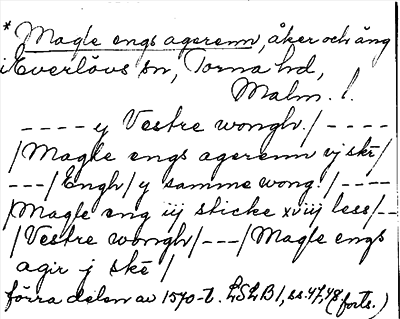 * Magle engs agerenn, åker och äng
i Everlövs sn, Torna hd,
Malm. l.
---- y Vestre wongh./ ----
/Magle engs agerenn vj skē/
---/Engh/y samme wong./----
/Magle eng iij sticke xviij less/--
/Vestre wongh/---/Magle engs
agir j skē/
förra delen av 1570-t. LSLB 1, ss. 47, 48 (forts.)